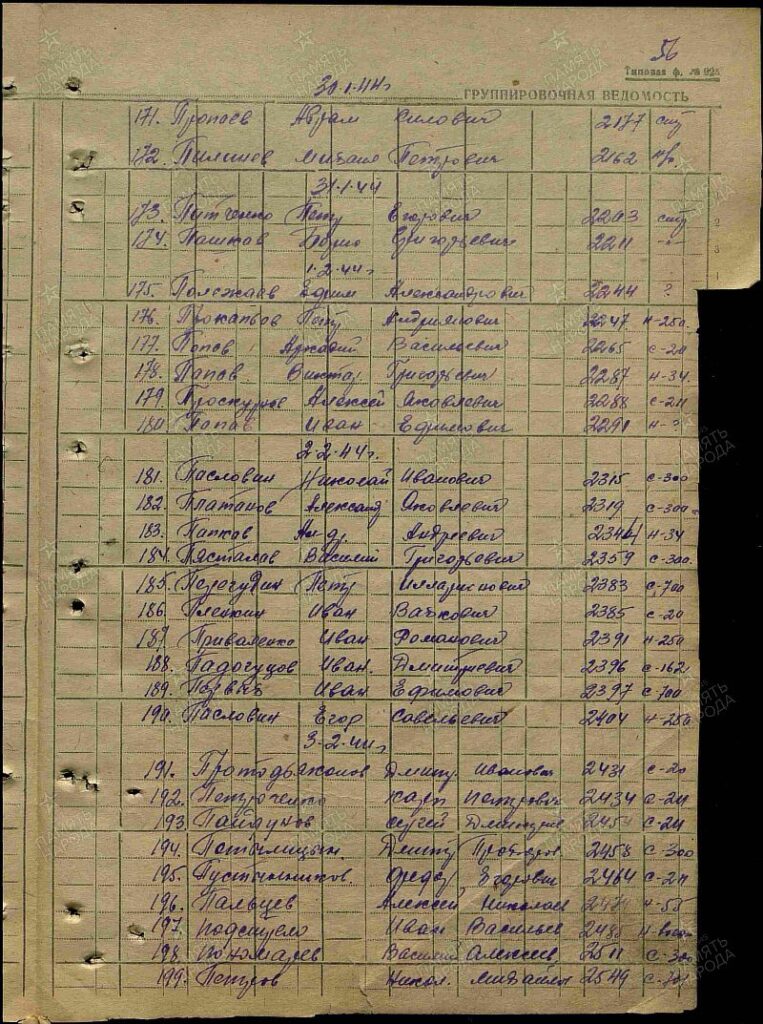 56
Типовая ф. № 928
30.1.44г
ГРУППИРОВОЧНАЯ ВЕДОМОСТЬ
171. Пропаев Аврам Силович 2177
172. Михаил Петрович 2162
31.1.44
173. Питченко Петр Егорович 2203
174. Пашков Григорьевич 2211 -"-
1.2.44г.
175. Полежаев Ефрим Александрович 2244 ?
176. Прокапьов Петр Андриянович 2247 н-250
177. Попов Аркадий Васильевич 2265 с-20
178. Папов Виктор Григорьевич 2287 н-34.
179. Алексей Яковлевич 2288 с-211
180. Папов Иван Ефимович 2291 н-?
2.2.44г.
181. Пасловин Николай Иванович 2315 с-300
182. Платанов Александ Яковлевич 2319 с-300
183. Папков Андр. Андреевич 2344 н-34
184. Пясталов Василий Григорьевич 2359 с-300.
185. Перегудин Петр Илларионович 2383 с-700
186. Иван 2385 с-20
187. Приваленко Иван Романович 2391 н-250
188. Падогуцов Иван. Дмитриевич 2396 с-162
189. Иван Ефимович 2397 с-700
190. Пасловин Егор Савельевич 2404 н-250
3-2.44г
191. Протодьяконов Дмитр. Иванович 2431 с-20
192. Петроченко Карп Петрович 2434 с-211
193 Пайдуков Сергей 2454 с-211
194. Потылицын. Дмитр 2458 с-300
195. Пустынников. Федор Егорович 2464 с-211
196. Пальцев Алексей Николаев н-55
197. Иван Васильев
198. Пономарев Василий Алексеев. 2511 с-300
199. Петров Никол. Михайлов 2549